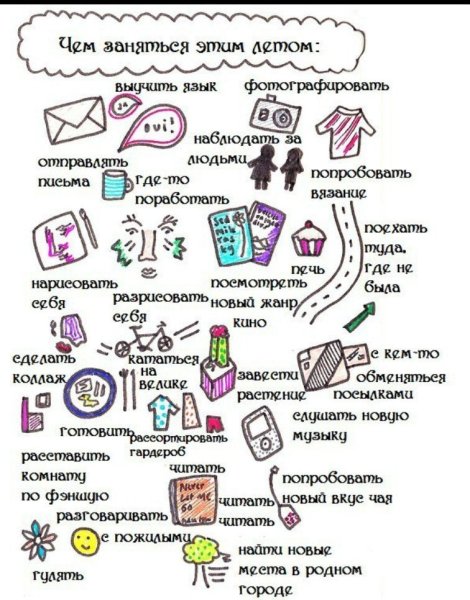 Чем заняться этим летом:
выучить язык
фотографировать
oui!
наблюдать за
людьми
отправлять
письма
где-то
поработать
попробовать
вязание
поехать
туда,
где не
была
нарисовать
себя
разрисовать
себя
посмотреть
новый жанр
кино
печь
сделать
коллаж
кататься
на
велике
завести
растение
с кем-то
обменяться
посылками
готовить
рассортировать
гардероб
слушать новую
музыку
расставить
комнату
по фэншую
читать
Never
Let Me
Go
читать
читать
попробовать
новый вкус чая
разговаривать
с пожилыми
гулять
найти новые
места в родном
городе